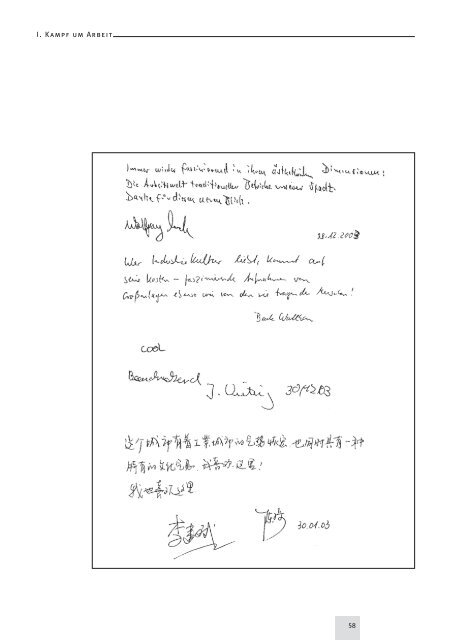 I. Kampf um Arbeit
Immer wieder faszinierend in ihren ästhetischen Dimensionen:
Die Arbeitswelt traditioneller Betriebe unserer Stadt.
Danke für diesen neuen Blick.
Wolfgang
18.12.2003
Wer Industriekultur liebt, kommt auf
seine Kosten – faszinierende Aufnahmen von
Großanlagen ebenso wie von den sie tragenden Menschen!
cool
Beeindruckend
J.
30/12/03
这个城市有着工业城市的气势恢宏 也同时具有一种
特有的文化气息. 我喜欢这里!
我也喜欢这里
李
陈
30.01.03
58